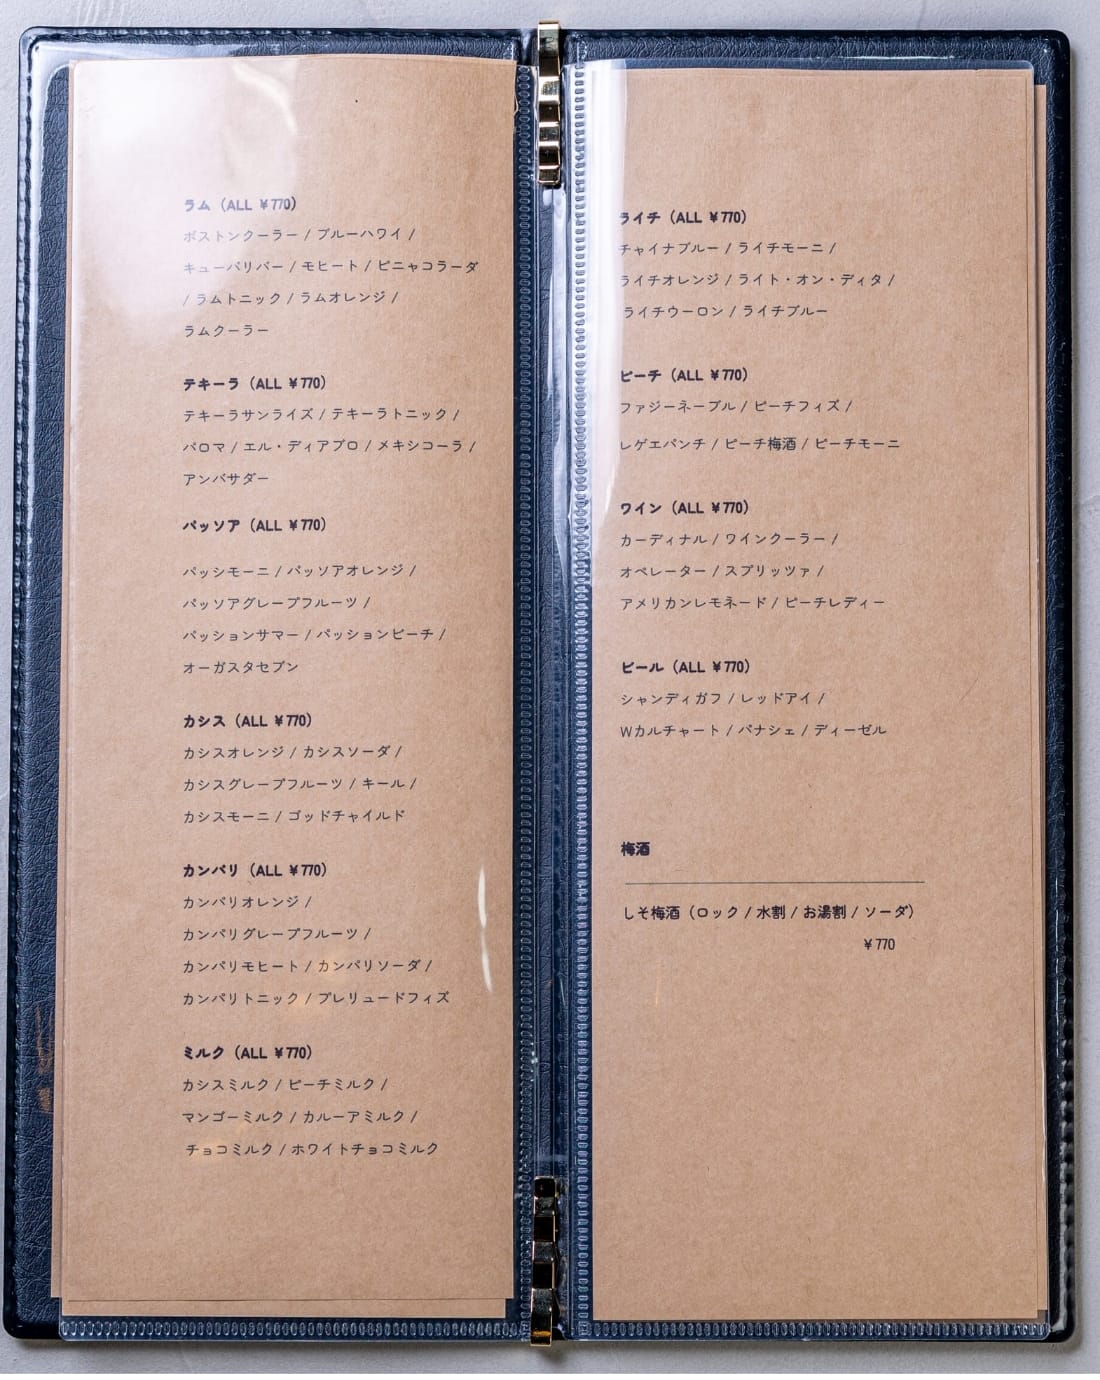 ラム（ALL ￥770）
ボストンクーラー / ブルーハワイ /
キューバリバー / モヒート / ピニャコラーダ
/ ラムトニック / ラムオレンジ /
ラムクーラー
テキーラ（ALL ￥770）
テキーラサンライズ / テキーラトニック /
パロマ / エル・ディアブロ / メキシコーラ /
アンバサダー
パッソア（ALL ￥770）
パッシモーニ / パッソアオレンジ /
パッソアグレープフルーツ /
パッションサマー / パッションピーチ /
オーガスタセブン
カシス（ALL ￥770）
カシスオレンジ / カシスソーダ /
カシスグレープフルーツ / キール /
カシスモーニ / ゴッドチャイルド
カンパリ（ALL ￥770）
カンパリオレンジ /
カンパリグレープフルーツ /
カンパリモヒート / カンパリソーダ /
カンパリトニック / プレリュードフィズ
ミルク（ALL ￥770）
カシスミルク / ピーチミルク /
マンゴーミルク / カルーアミルク /
チョコミルク / ホワイトチョコミルク
ライチ（ALL ￥770）
チャイナブルー / ライチモーニ /
ライチオレンジ / ライト・オン・ディタ /
ライチウーロン / ライチブルー
ピーチ（ALL ￥770）
ファジーネーブル / ピーチフィズ /
レゲエパンチ / ピーチ梅酒 / ピーチモーニ
ワイン（ALL ￥770）
カーディナル / ワインクーラー /
オペレーター / スプリッツァ /
アメリカンレモネード / ピーチレディー
ビール（ALL ￥770）
シャンディガフ / レッドアイ /
Wカルチャート / パナシェ / ディーゼル
梅酒
しそ梅酒（ロック / 水割 / お湯割 / ソーダ）
￥770